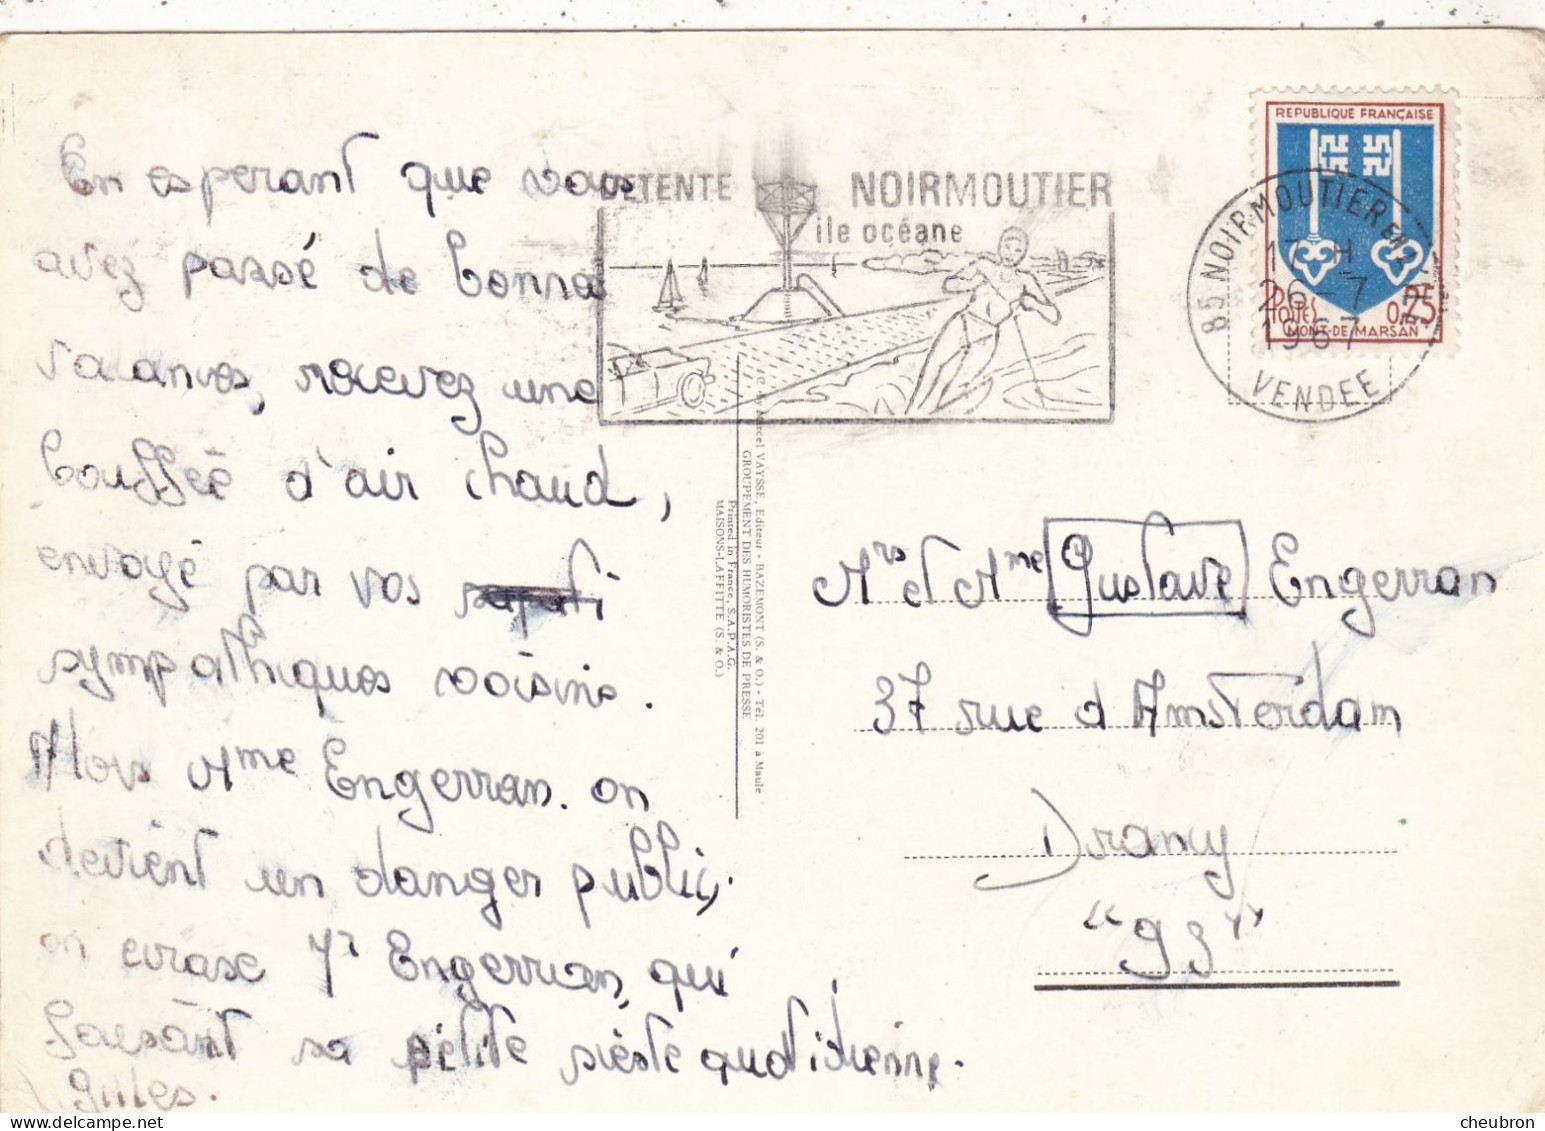 En esperant que vous
avez passé de bonne
vacances, recevez une
bouffée d'air chaud,
envoyé par vos
sympathiques voisins.
Alors Mme Engerran. on
devient un danger public,
on ecrase Mr Engerran, qui
faisant sa petite sièste quotidienne.
Gilles.
DETENTE NOIRMOUTIER
île océane
REPUBLIQUE FRANÇAISE
Postes 0,25
MONT-DE-MARSAN
85 NOIRMOUTIER EN L'ILE
17 H
26 - 7
1967
VENDEE
Marcel VAYSSE, Editeur - BAZEMONT (S. & O.) - Tél. 201 à Maule
GROUPEMENT DES HUMORISTES DE PRESSE
Printed in France, S.A.P.A.G.
MAISONS-LAFFITTE (S. & O.)
Mrs et Mme Gustave Engerran
37 rue d'Amsterdam
Drancy
"93"
cheubron